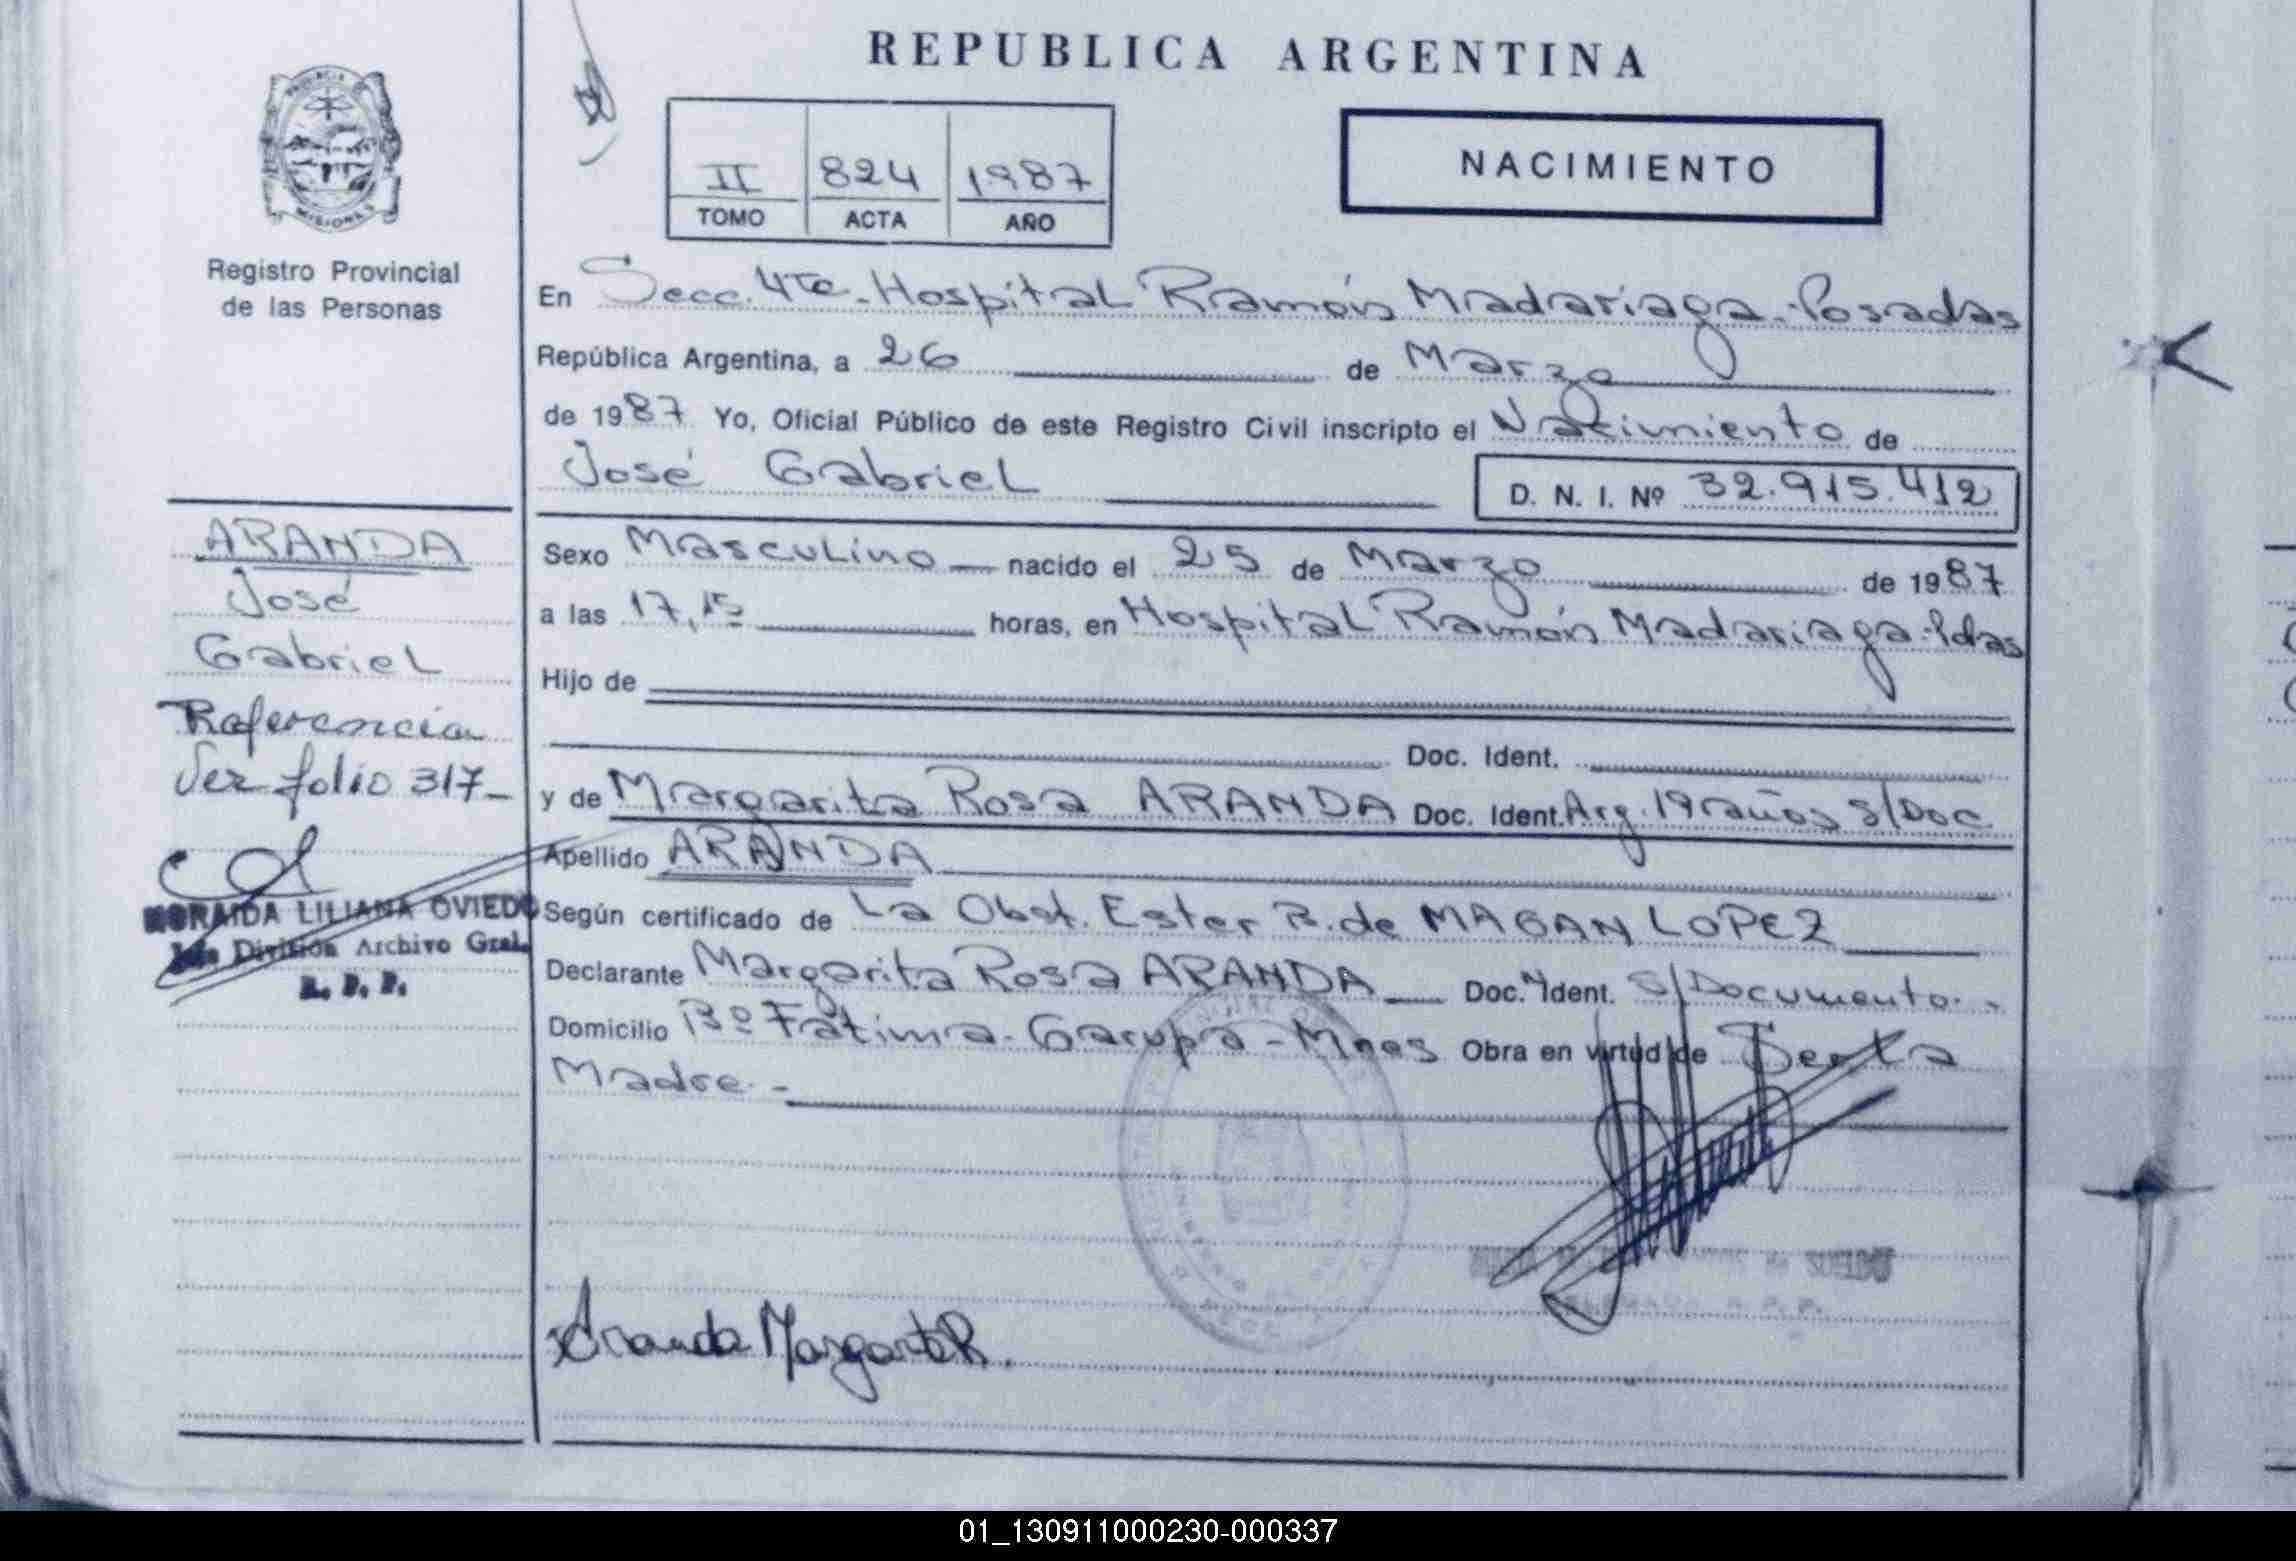 REPUBLICA ARGENTINA
PROVINCIA DE
MISIONES
Registro Provincial
de las Personas
II 824 1987
TOMO ACTA AÑO
NACIMIENTO
En Secc. 4ta - Hospital Ramón Madariaga - Posadas
República Argentina, a 26 de Marzo
de 1987 Yo, Oficial Público de este Registro Civil inscripto el Nacimiento de
José Gabriel
D. N. I. Nº 32.915.412
Sexo Masculino — nacido el 25 de Marzo de 1987
a las 17,15 horas, en Hospital Ramón Madariaga - Pdas
Hijo de
Doc. Ident.
y de Margarita Rosa ARANDA Doc. Ident. Arg. 19 años s/Doc
Apellido ARANDA
Según certificado de La Obst. Ester R. de MAGAN LOPEZ
Declarante Margarita Rosa ARANDA — Doc. Ident. S/Documento. -
Domicilio Bº Fátima - Garupá - Mnes Obra en virtud de
Madre. -
Aranda Margarita R.
ARANDA
José
Gabriel
Referencia
Ver folio 317 -
NORAIDA LILIANA OVIEDO
División Archivo Gral.
R. P. P.
01_130911000230-000337